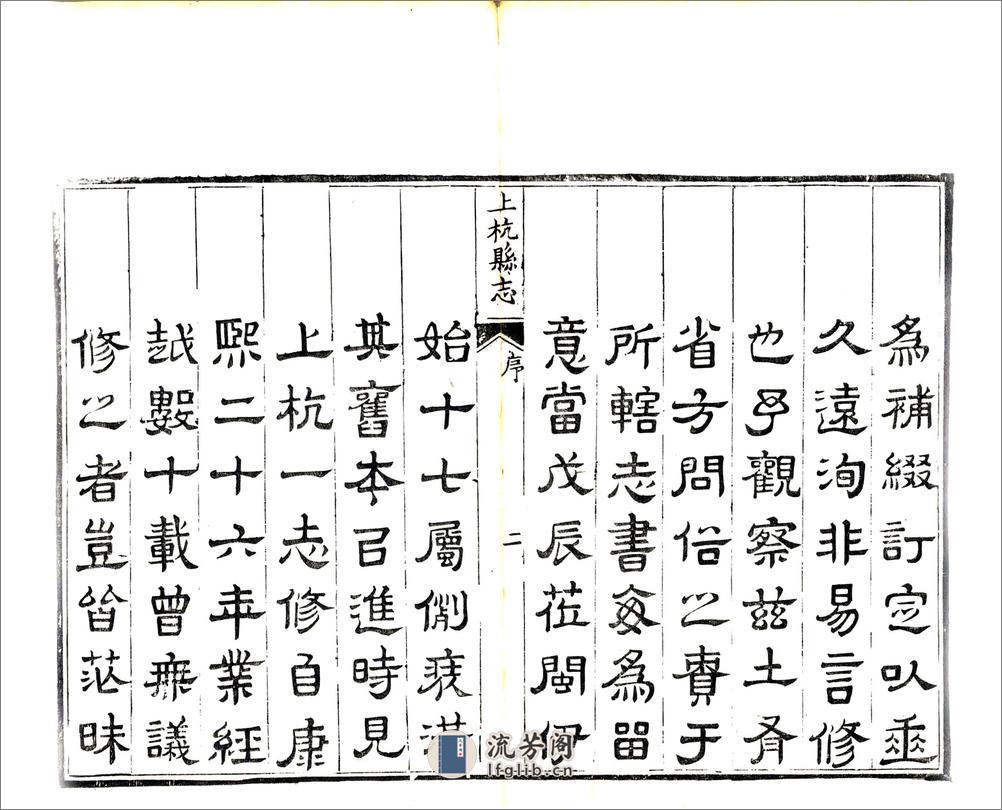 爲補綴訂定以垂
久遠洵非易言修
也予觀察茲土有
省方問俗之責于
所轄志書每爲留
意當戊辰莅閩伊
上杭縣志
序
二
始十七屬
其舊本㠯進時見
上杭一志修自康
熙二十六年業經
越數十載曾無議
修之者豈皆茫昧
流芳阁
lfglib.cn